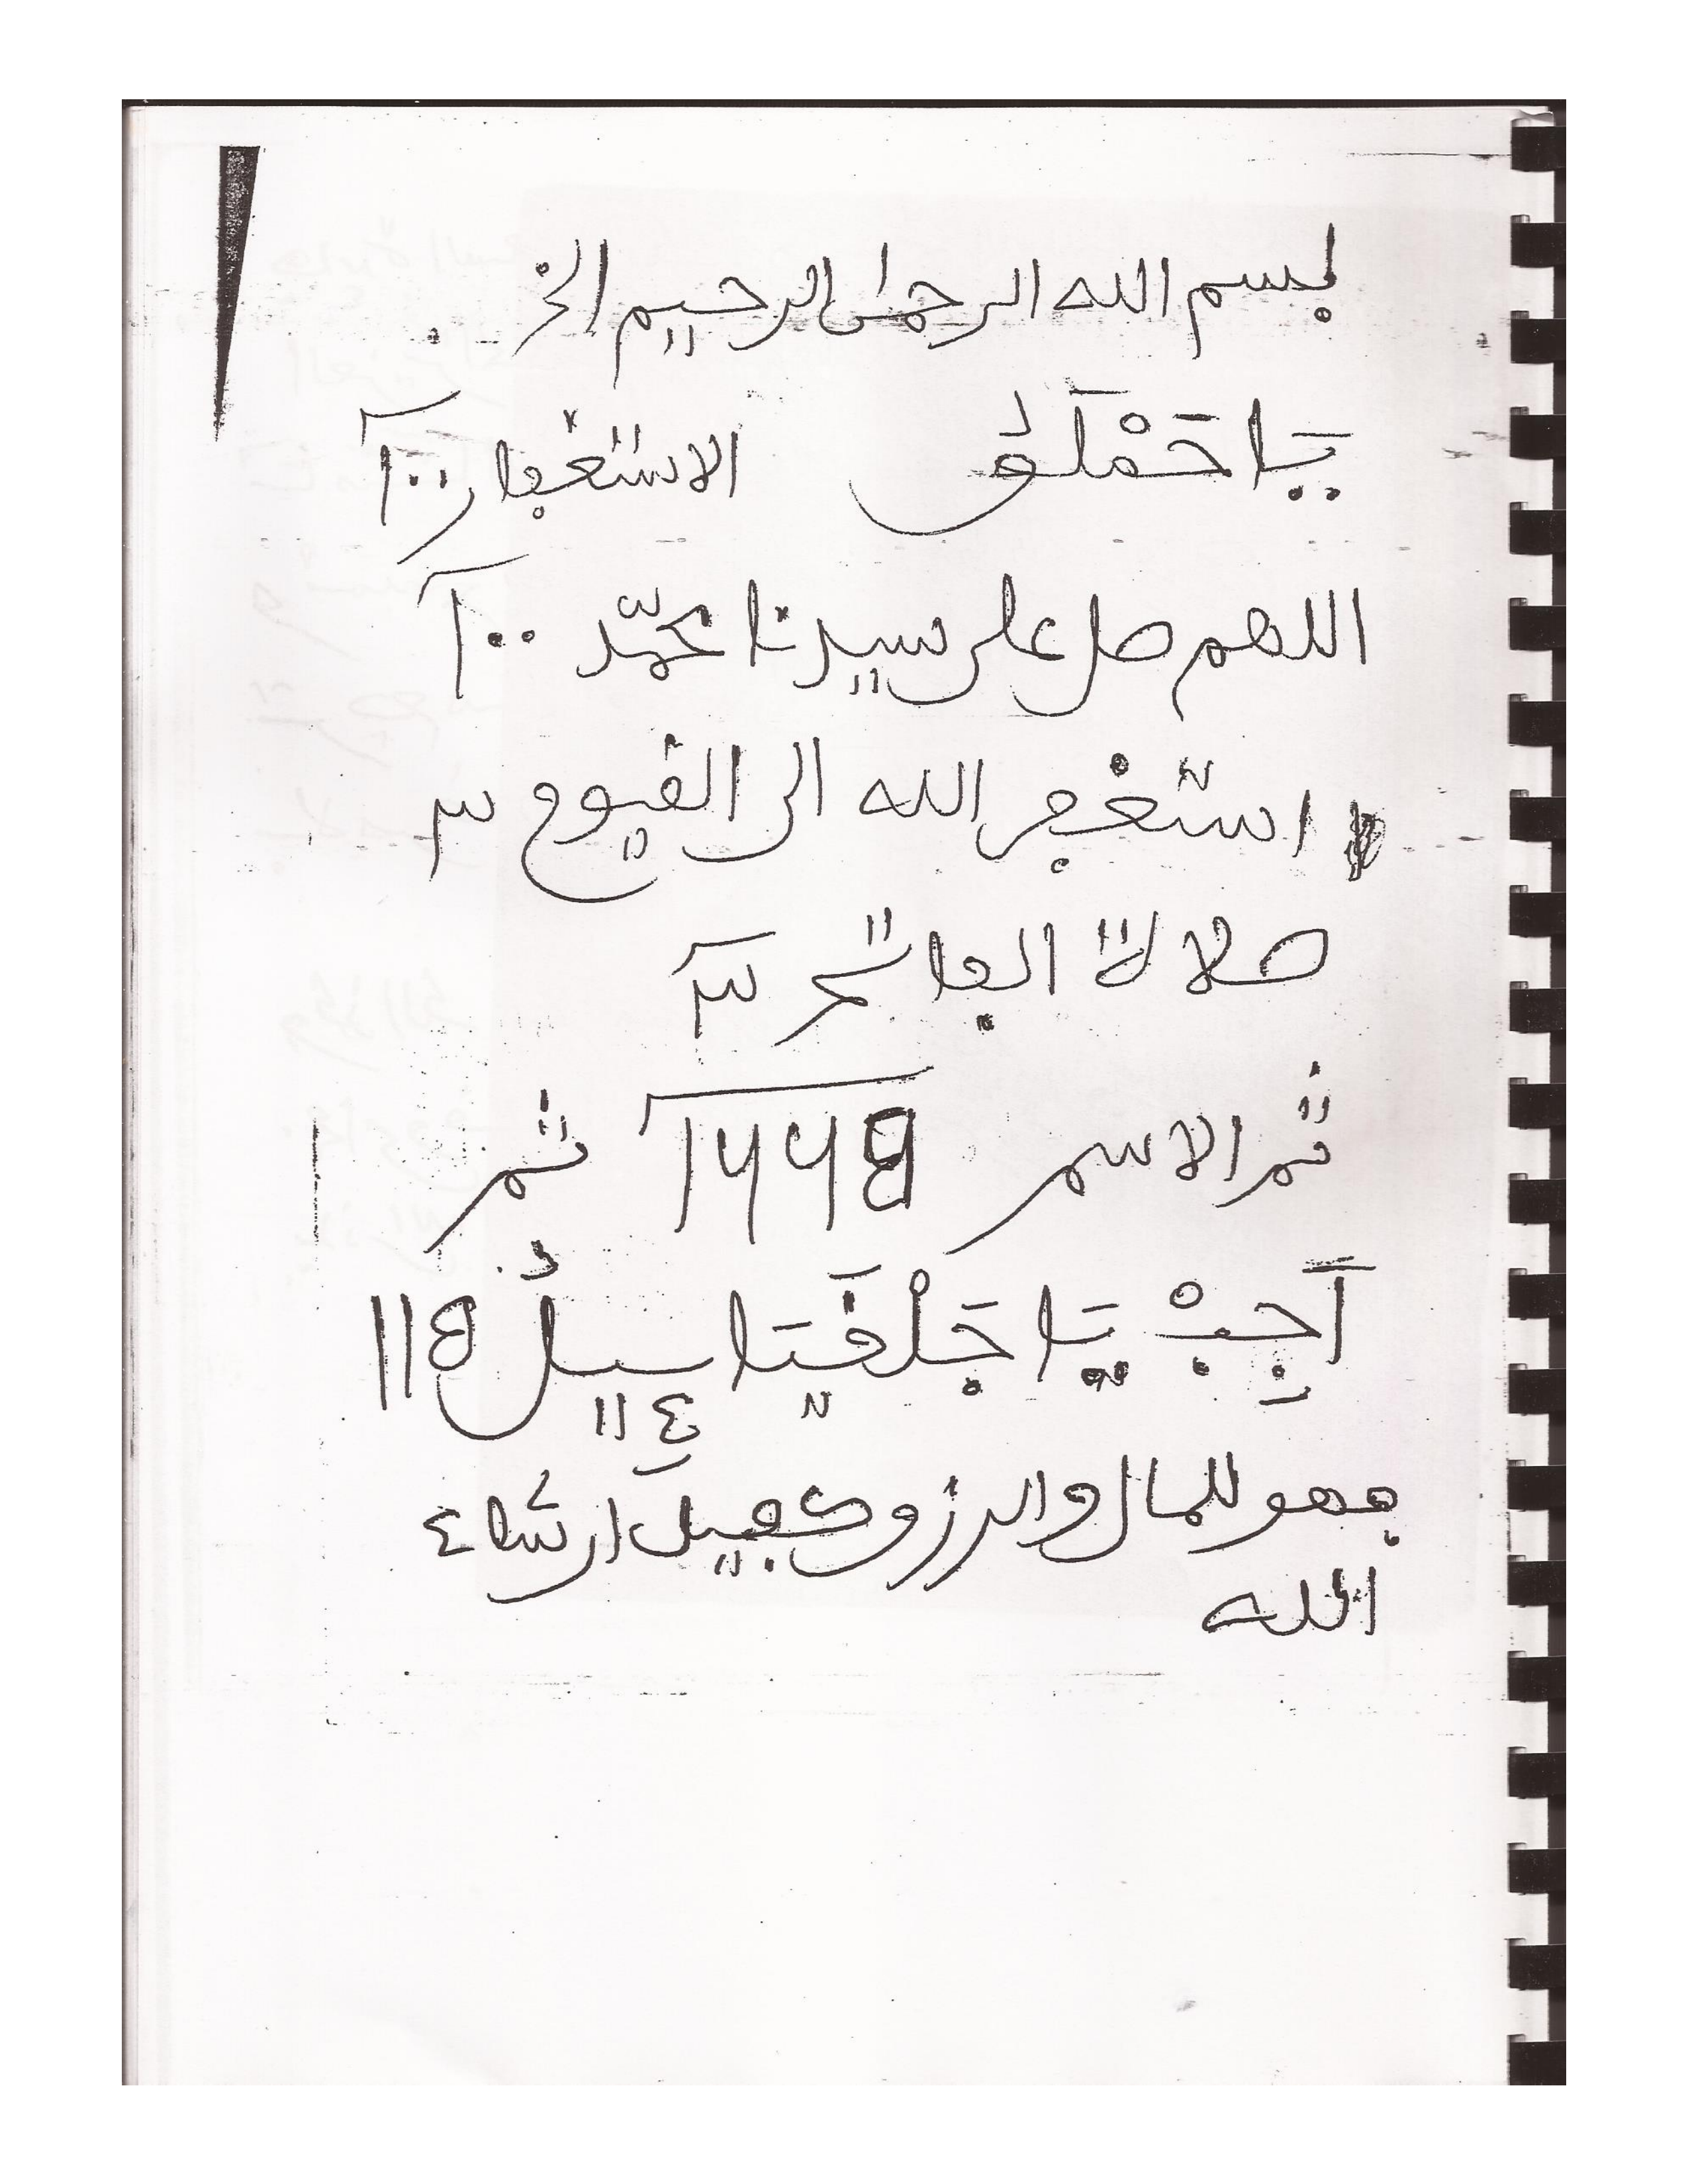 بسم الله الرحمن الرحيم الخ
يَا حَمْلَقُ الاستغفار ١٠٠
اللهم صل على سيدنا محمّد ١٠٠
استغفر الله الى القيوم ٣
صلاة الفاتح ٣
ثم الاسم ثم
اَجِبْ يَا جَلْفَيَائِيلُ
فهو للمال والرزق كفيل ان شاء
الله